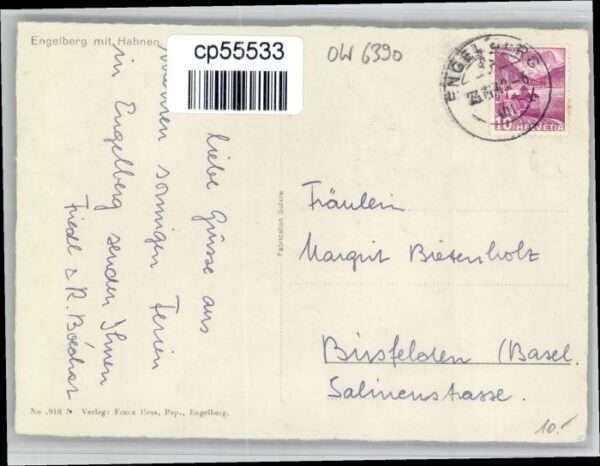 Engelberg mit Hahnen
cp55533
OW 6390
ENGELBERG
VIII
10 HELVETIA
liebe Grüsse aus
sonnigen Ferien
in Engelberg senden Ihnen
Friedl & R.
Fabrication Suisse
Fräulein
Margrit Bietenholz
Birsfelden (Basel.
Salinenstrasse.
No .918 N Verlag: Franz Hess, Pap., Engelberg.
10.-